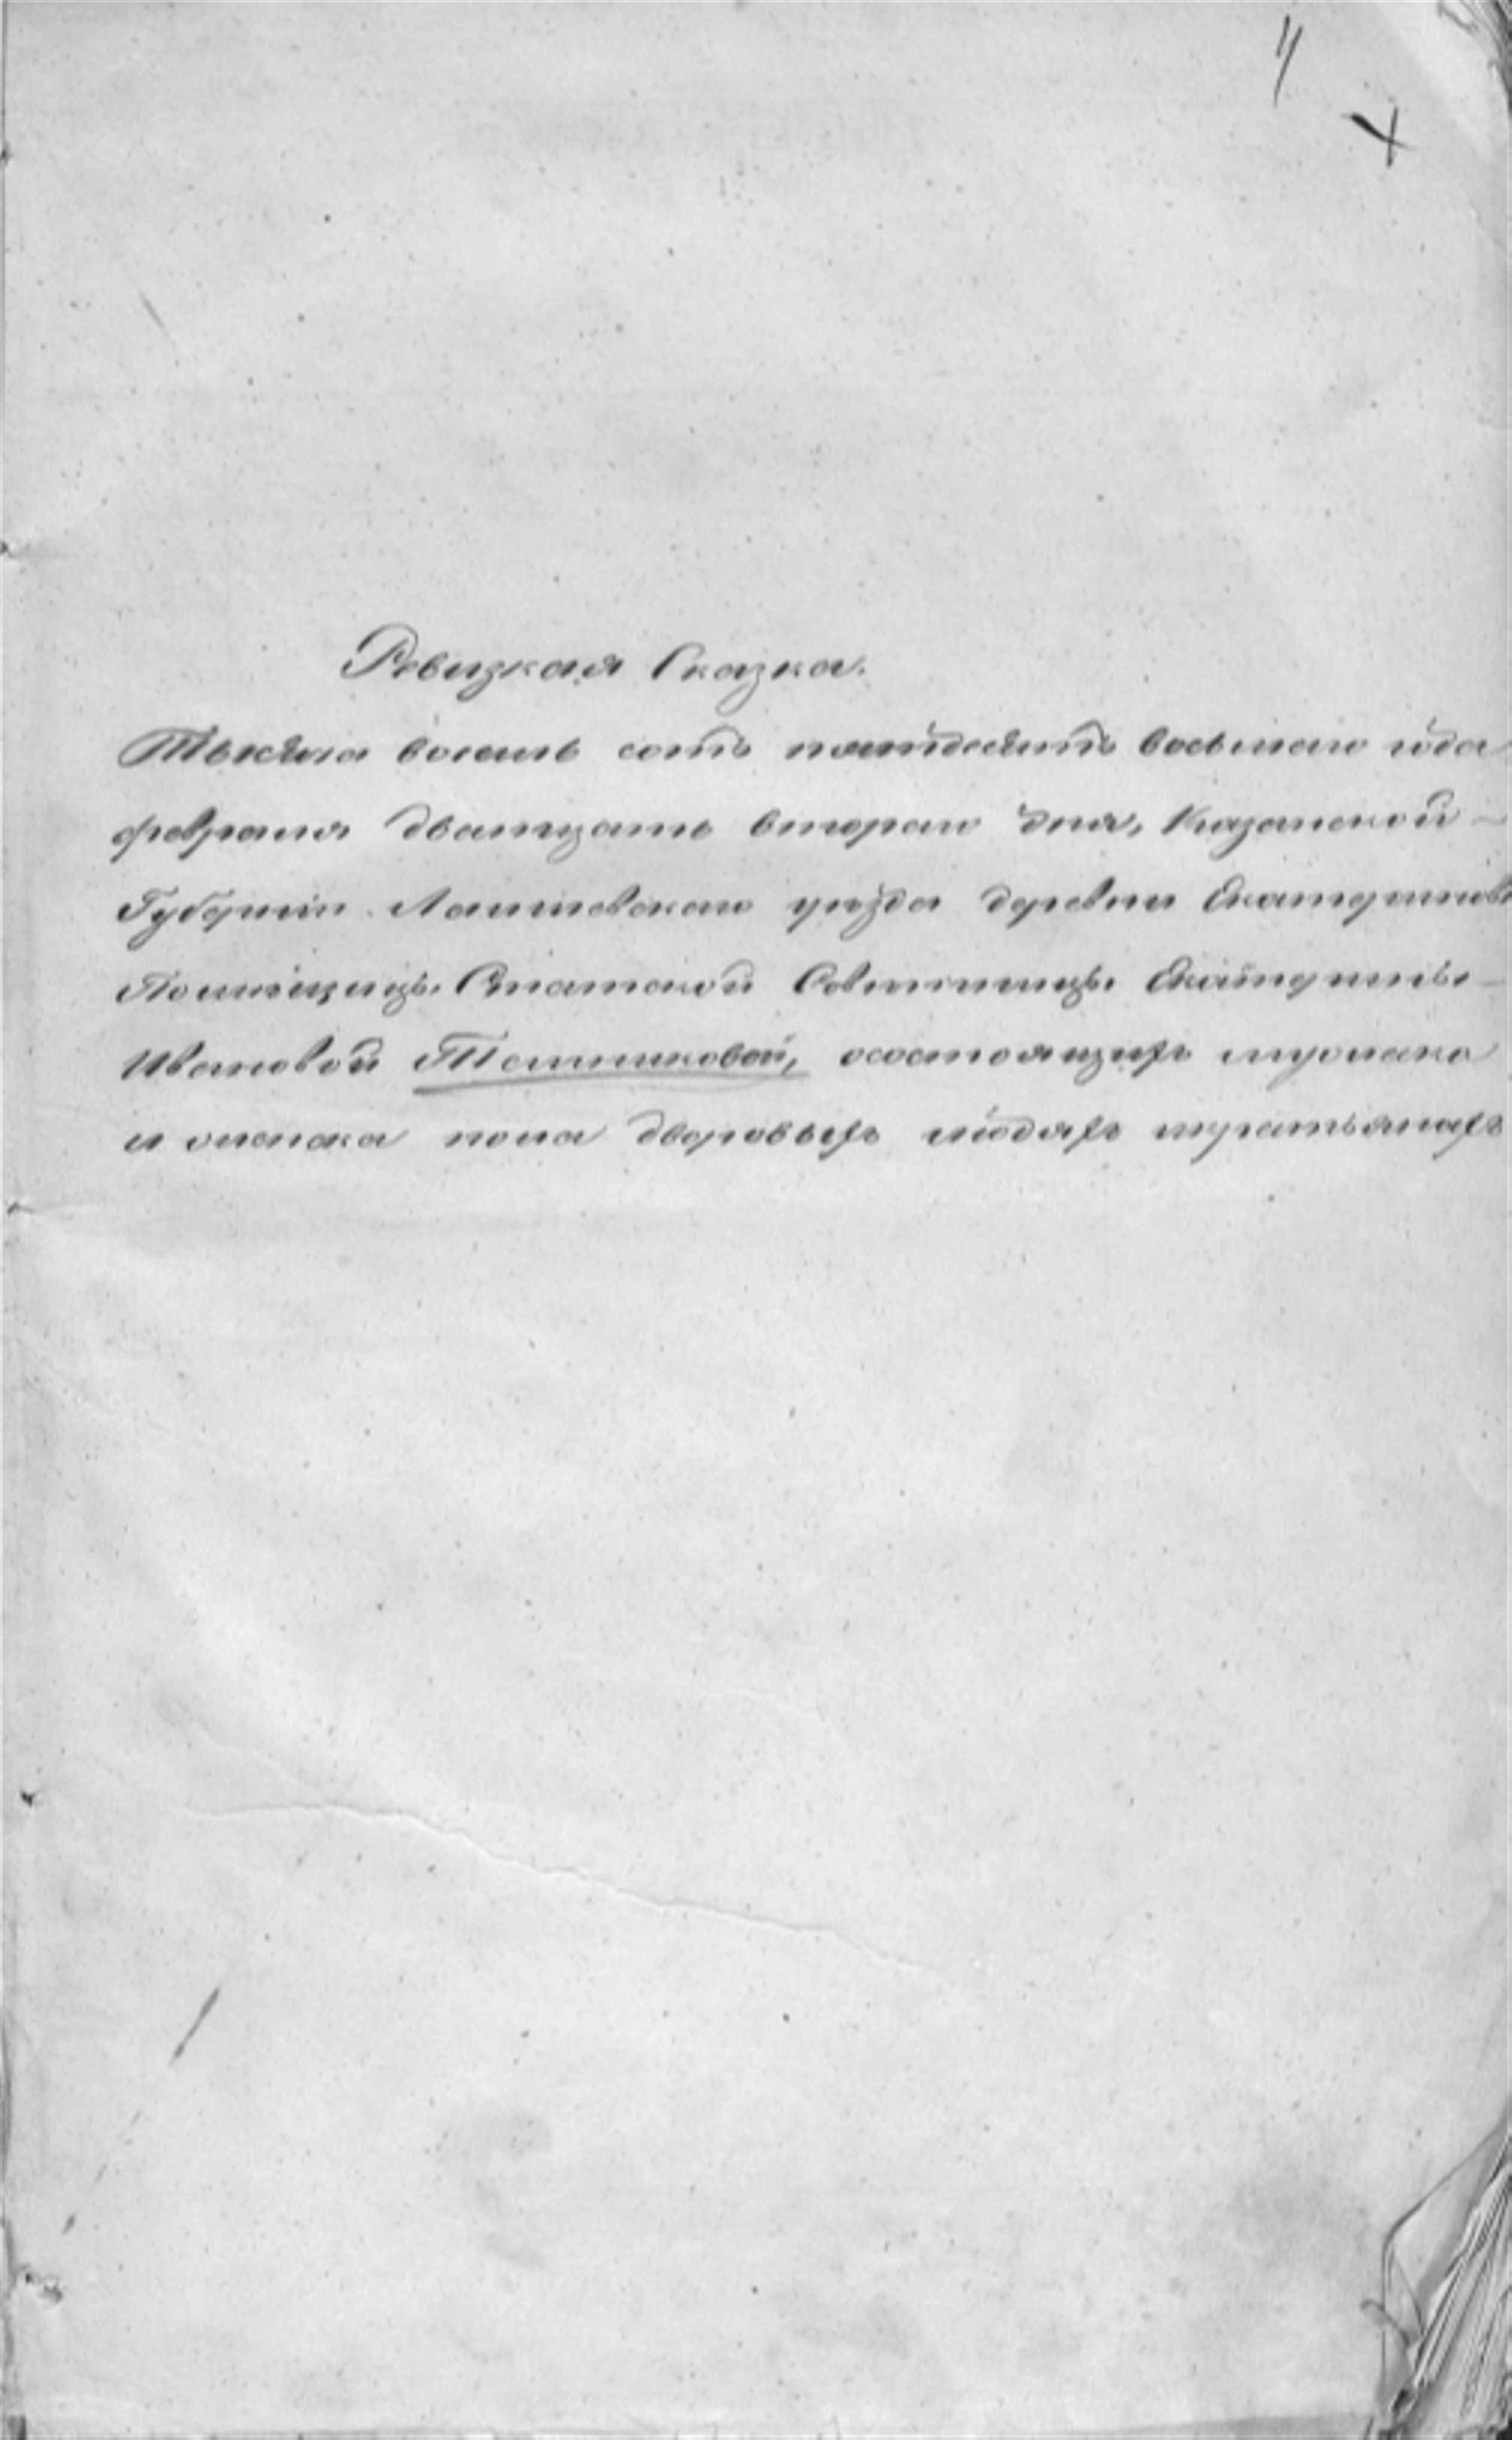 Ревизкая Сказка.
Тысяча восемь сотъ пятьдесятъ восьмаго года
февраля дватцать втораго дня, Казанской –
Губерніи Лаишевскаго уѣзда деревни Екатериновки
Помѣщицы Статской Совѣтницы Екатерины –
Ивановой Теминиковой, осостоящихъ мужеска
и женска пола дворовыхъ людяхъ икрестьянахъ